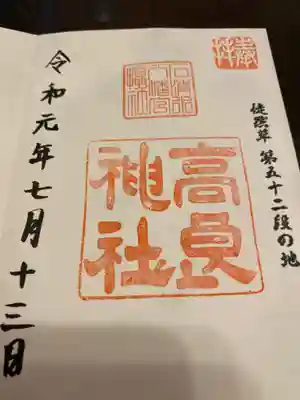 奉拝
徒然草 第五十二段の地
高良
神社
令和元年七月十三日